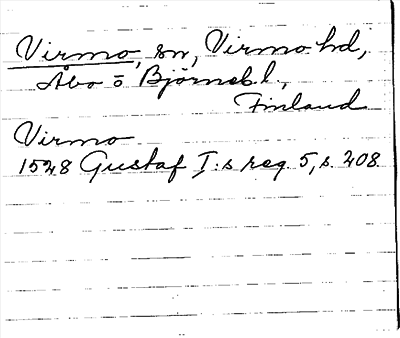 Virmo, sn, Virmo hd,
Åbo o Björneb. l.,
Finland
Virmo
1528 Gustaf I:s reg. 5, s. 208.